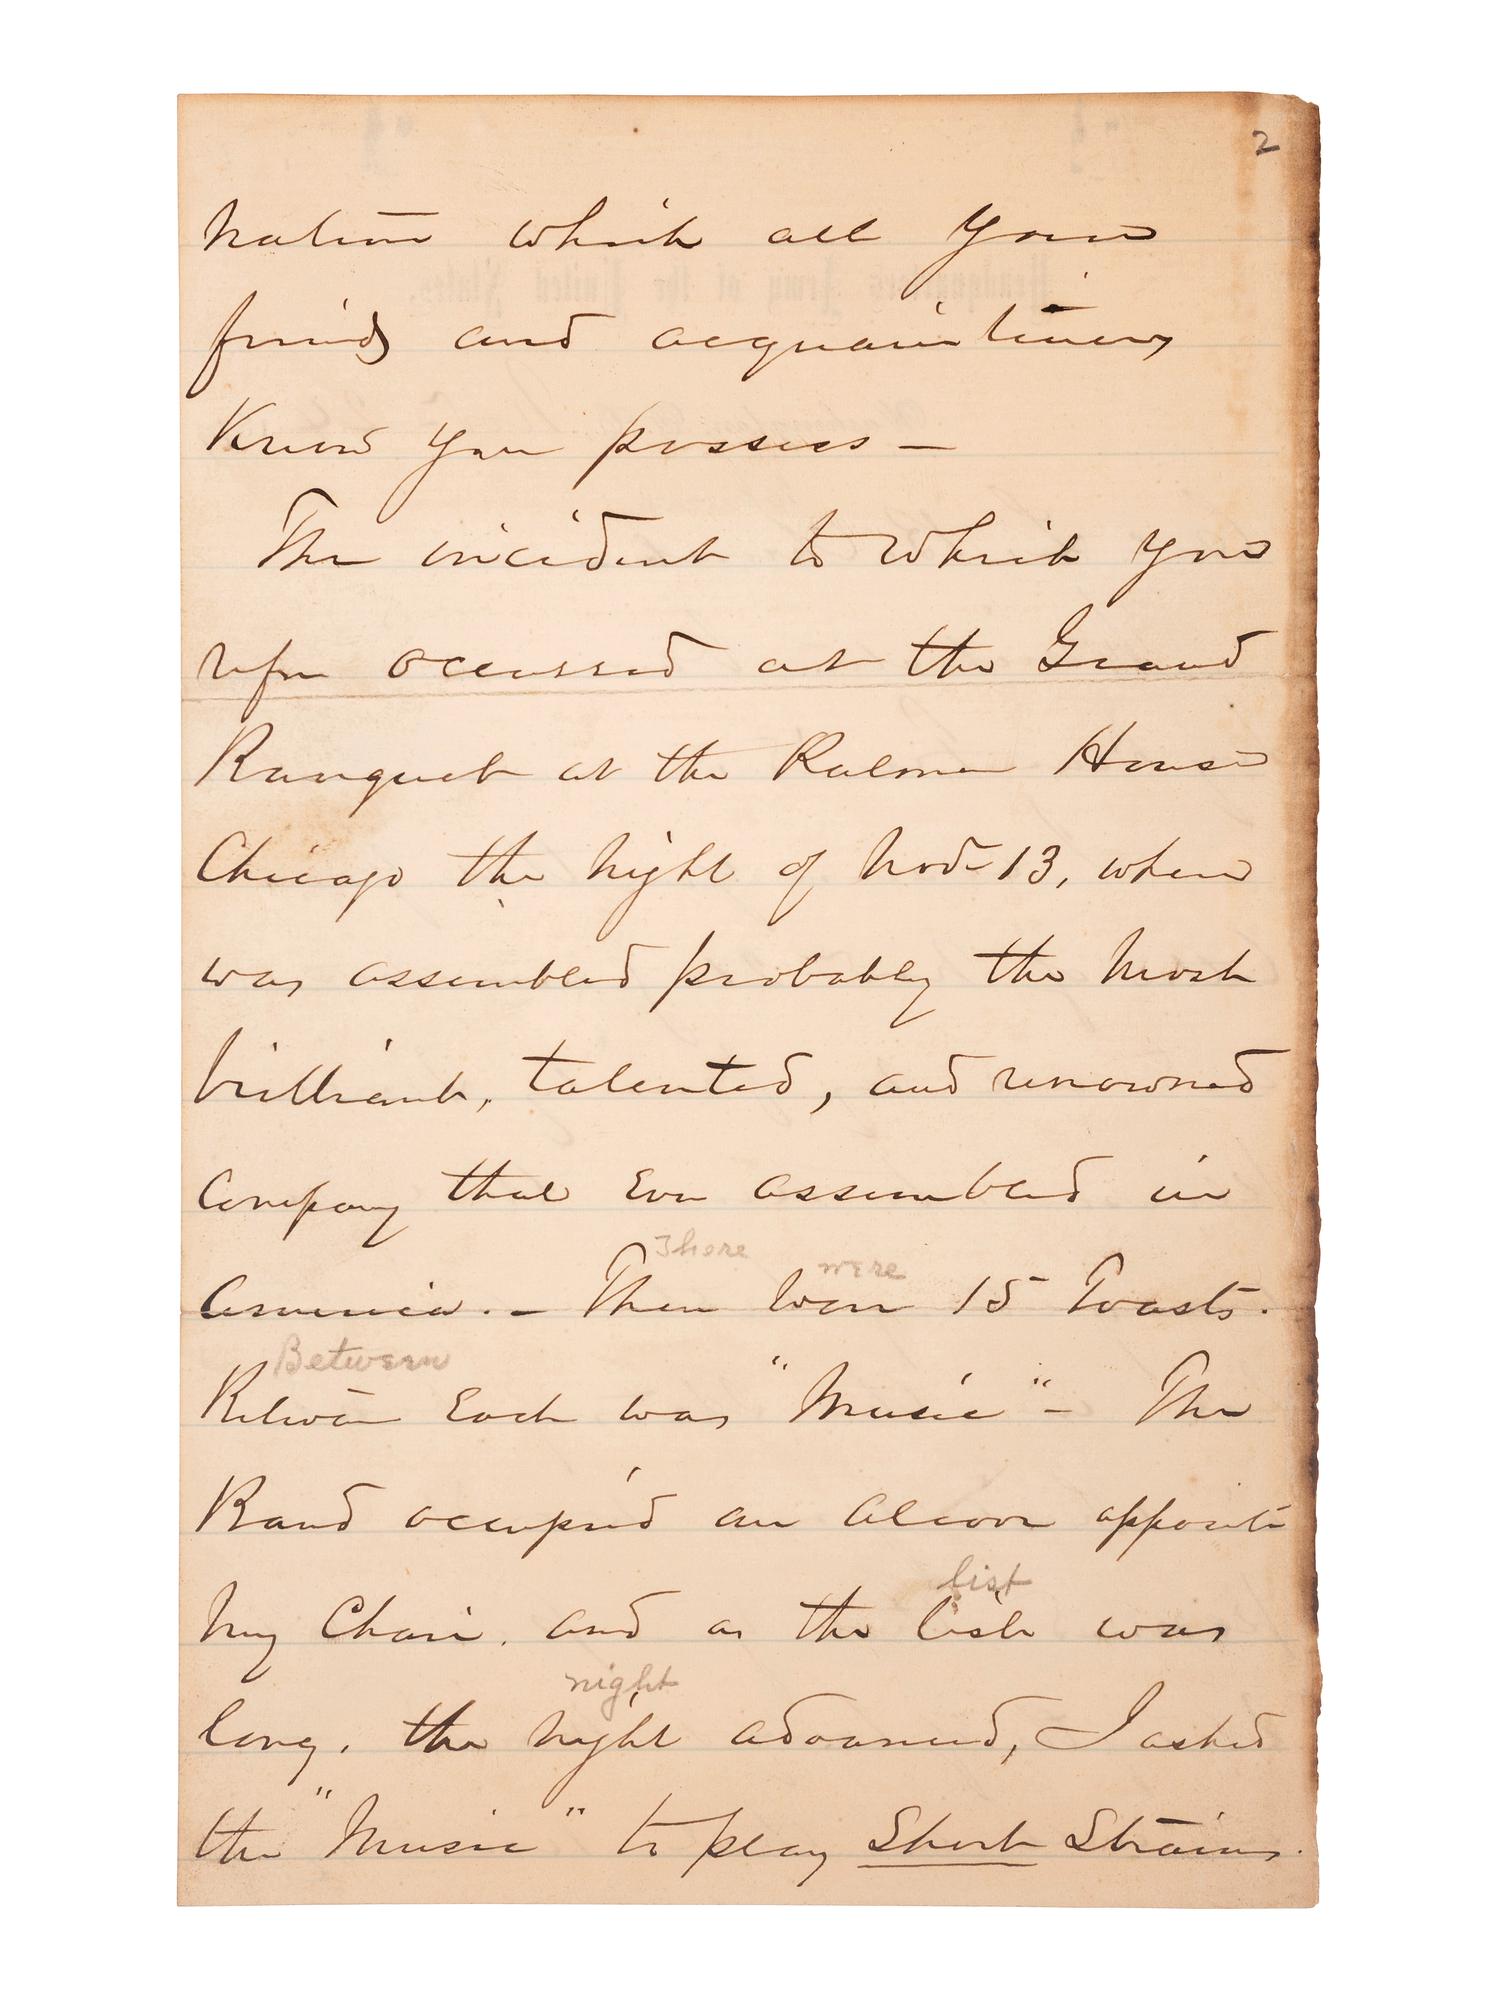 2
nation which all your
friends and acquaintances
Know you possess —
The incident to which you
refer occurred at the Grand
Banquet at the Palmer House
Chicago the night of Nov 13, when
was assembled probably the most
brilliant, talented, and renowned
Company that Ever assembled in
There were
America. — There were 15 Toasts.
Between
Between Each was "Music" — The
Band occupied an alcove opposite
list
my Chair. and as the list was
night
long, the night advanced, I asked
the "Music" to play Short Strains.